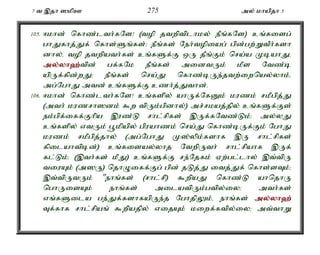 7 வ இதா ஸமிஊ 275 அல் மாயிதா 5
105. ஈமான் கொண்டவர்களே! (வழி தவறிவிடாமல் நீங்களே) உங்களைப்
பாதுகாத்துக் கொள்ளுங்கள்; நீங்கள் நேர்வழியைப் பின்பற்றுவீர்களா
னால், வழி தவறியவர்கள் உங்களுக்கு ஒரு தீங்கும் செய்ய முடியாது;
அல்லாஹ்வின் பக்கமே நீங்கள் அனைவரும் மீள வேண்டி
யிருக்கின்றது; நீங்கள் செய்து கொண்டிருந்தவற்றையெல்லாம்,
அப்போது அவன் உங்களுக்கு உணர்த்துவான்.
106. ஈமான் கொண்டவர்களே! உங்களில் யாருக்கேனும் மரணம் சமீபித்து
(அவர் மரணசாஸனம் கூற விரும்பினால்) அச்சமயத்தில் உங்களுக்குள்
நம்பிக்கைக்குரிய இரண்டு சாட்சிகள் இருக்கவேண்டும்; அல்லது
உங்களில் எவரும் பூமியில் பிரயாணம் செய்து கொண்டிருக்கும் போது
மரணம் சமீபித்தால் (அப்போது முஸ்லீம்களாக இரு சாட்சிகள்
கிடையாவிடின்) உங்களையல்லாத வேறிருவர் சாட்சியாக இருக்
கட்டும்; (இவர்கள் மீது) உங்களுக்கு சந்தேகம் ஏற்பட்டால் இவ்விரு
வரையும் (அஸரு) தொழுகைக்குப் பின் தடுத்து வைத்துக் கொள்ளவும்;
இவ்விருவரும் “நாங்கள் (சாட்சி) கூறியது கொண்டு யாதொரு
பொருளையும் நாங்கள் அடையவிரும்பவில்லை; அவர்கள்
எங்களுடைய பந்துக்களாகயிருந்த போதிலும், நாங்கள் அல்லாஹ்
வுக்காக சாட்சியங் கூறியதில் எதையும் மறைக்கவில்லை; அவ்வாறு